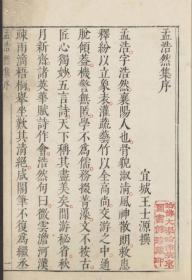 孟浩然集序
宜城王士源撰
孟浩然字浩然襄陽人也骨貌淑清風神散朗救患
釋紛以立義表灌蔬藝竹以全高尚交游之中通
脫傾蓋機警無匿學不爲儒務掇菁藻文不按古
匠心獨妙五言詩天下稱其盡美矣間游秘省秋
月新霽諸英華賦詩作會浩然句曰微雲澹河漢
疎雨滴梧桐舉坐歎其清絕咸閣筆不復爲繼丞
孟浩然集序